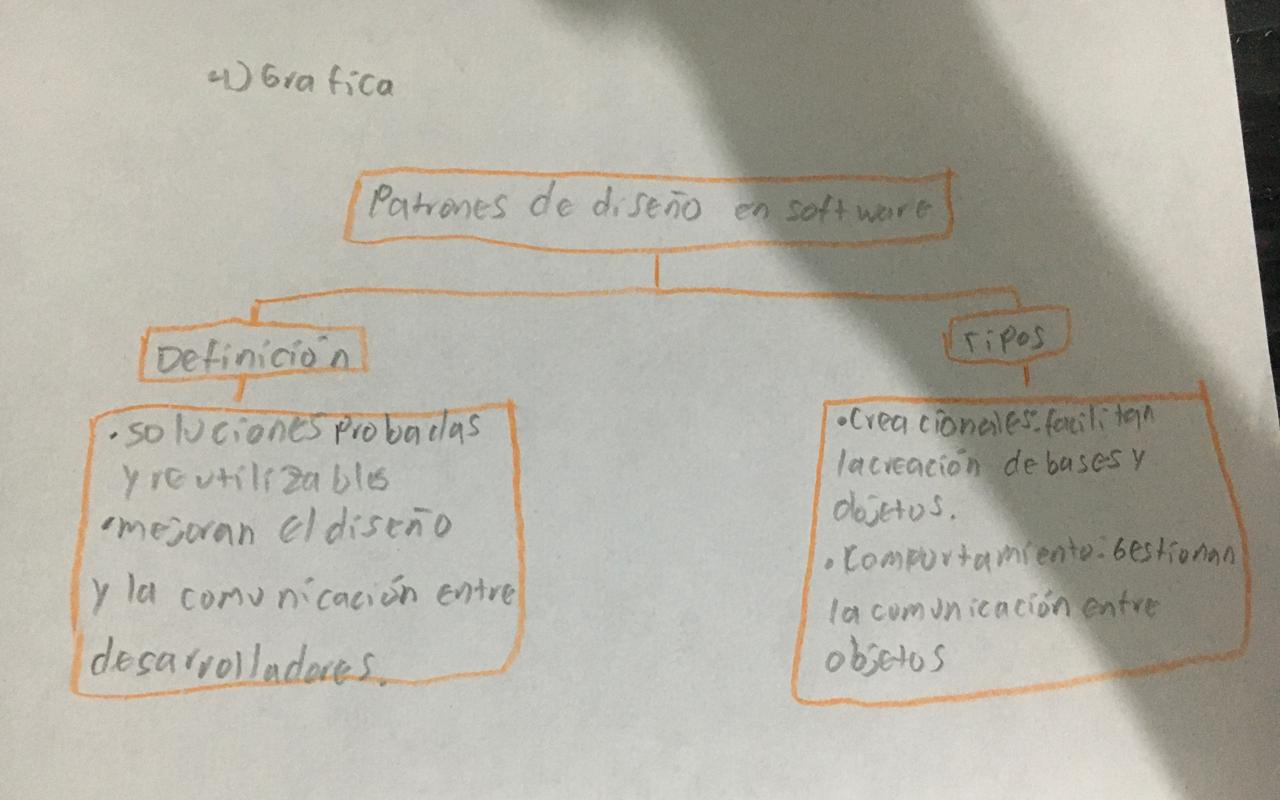 4) Grafica
Patrones de diseño en software
Definición
Tipos
• soluciones probadas
y reutilizables
• mejoran el diseño
y la comunicación entre
desarrolladores.
• Creacionales: facilitan
la creación de bases y
objetos.
• Comportamiento: Gestionan
la comunicación entre
objetos